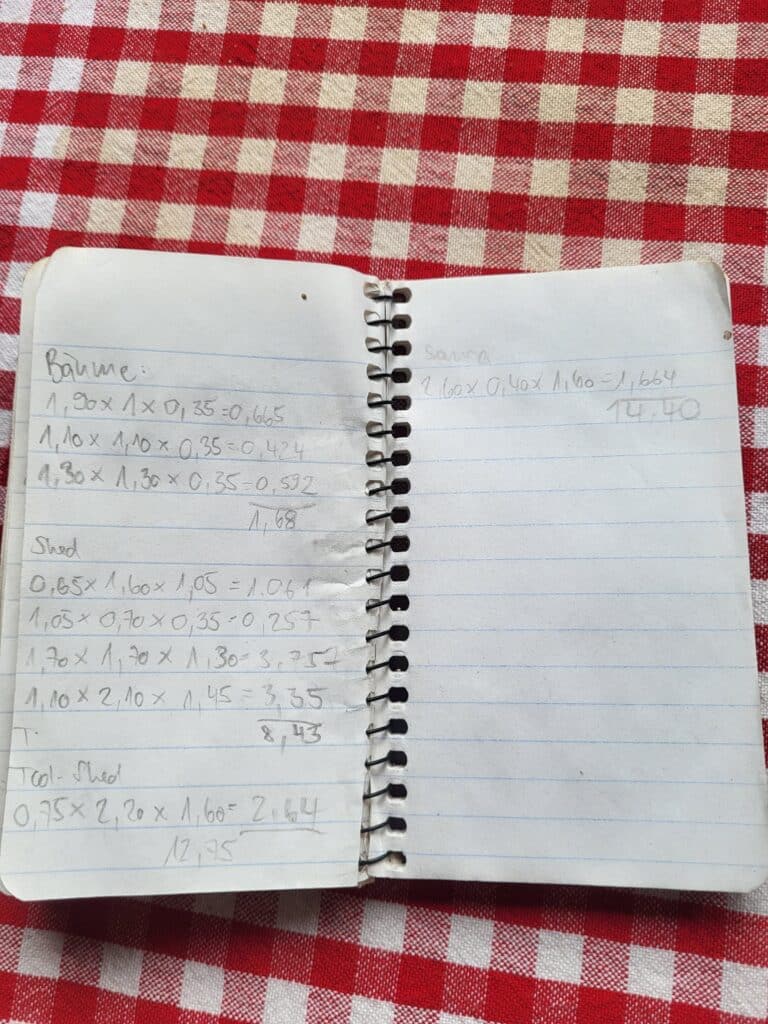 Bäume:
1,90 x 1 x 0,35 = 0,665
1,10 x 1,10 x 0,35 = 0,424
1,30 x 1,30 x 0,35 = 0,592
1,68
Shed
0,65 x 1,60 x 1,05 = 1.061
1,05 x 0,70 x 0,35 = 0,257
1,70 x 1,70 x 1,30 = 3,757
1,10 x 2,10 x 1,45 = 3,35
8,43
T.
Tool-Shed
0,75 x 2,20 x 1,60 = 2,64
12,75
Sauna
2,60 x 0,40 x 1,60 = 1,664
14.40